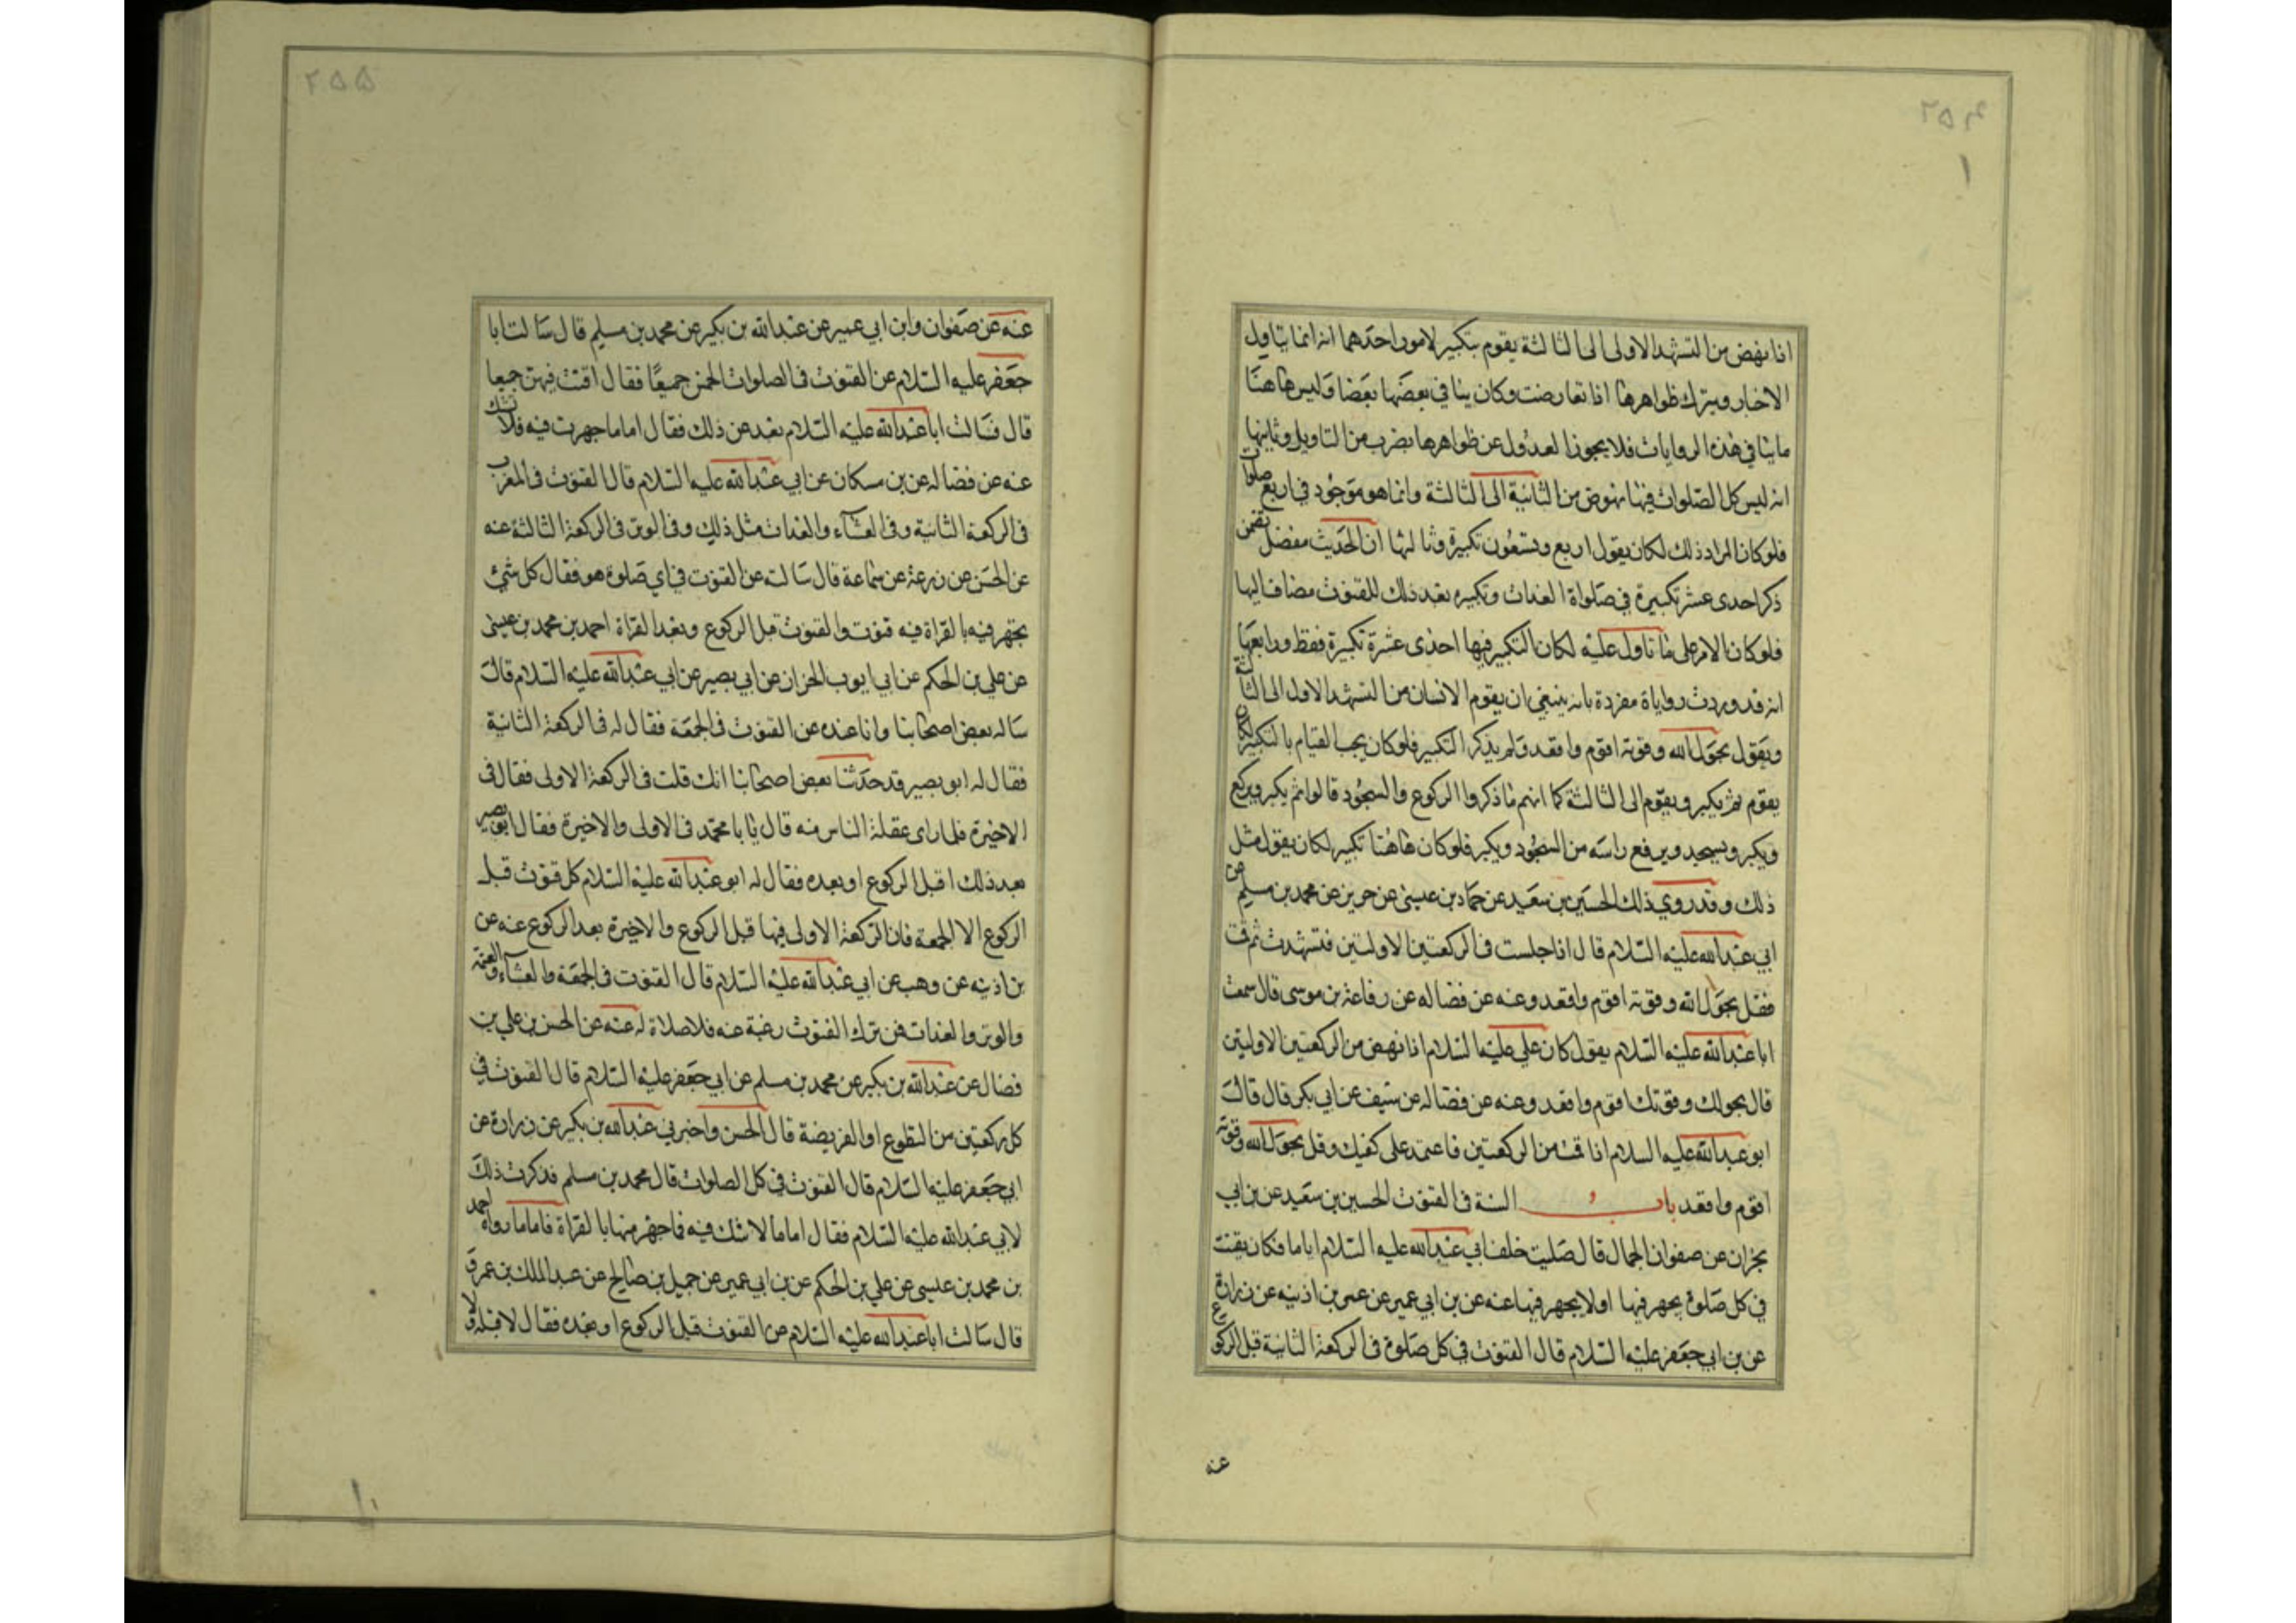 ٢٥٤
اذا نهض من التشهد الاولى الى الثالثة يقوم بتكبير لامور احدهما انه انما يتاول
الاخبار ويترك ظواهرها اذا تعارضت وكان ينافي بعضها بعضا وليس هاهنا
ما ينافي هذه الروايات فلا يجوز العدول عن ظواهرها بضرب من التاويل وثانيها
انه ليس كل الصلوات فيها نهوض من الثانية الى الثالثة وانما هو موجود في اربع صلوات
فلو كان المراد ذلك لكان يقول اربع وتسعون تكبيرة وثالثها ان الحديث مفصل تضمن
ذكر احدى عشر تكبيرة في صلواة الغدات وتكبيره بعد ذلك للقنوت مضاف اليها
فلو كان الامر على ما تاول عليه لكان التكبير فيها احدى عشرة تكبيرة فقط ورابعها
انه قد وردت رواياة مفردة بانه ينبغي ان يقوم الانسان من التشهد الاول الى الثالثة
ويقول بحول الله وقوته اقوم واقعد ولم يذكر التكبير فلو كان يجب القيام بالتكبير لكان
يقوم ثم يكبر ويقوم الى الثالثة كما انهم ما ذكروا الركوع والسجود قالوا ثم يكبر ويركع
ويكبر ويسجد ويرفع راسه من السجود ويكبر فلو كان هاهنا تكبير لكان يقول مثل
ذلك وقد روي ذلك الحسين بن سعيد عن حماد بن عيسى عن حريز عن محمد بن مسلم عن
ابي عبد الله عليه السلام قال اذا جلست في الركعتين الاولتين فتشهدت ثم قمت
فقل بحول الله وقوته اقوم واقعد وعنه عن فضاله عن رفاعة بن موسى قال سمعت
ابا عبد الله عليه السلام يقول كان علي عليه السلام اذا نهض من الركعتين الاولتين
قال بحولك وقوتك اقوم واقعد وعنه عن فضاله عن سيف عن ابي بكر قال قال
ابو عبد الله عليه السلام اذا قمت من الركعتين فاعتمد على كفيك وقل بحول الله وقوته
اقوم واقعد باب السنة في القنوت الحسين بن سعيد عن بن ابي
نجران عن صفوان الجمال قال صليت خلف ابي عبد الله عليه السلام اياما فكان يقنت
في كل صلوة يجهر فيها او لا يجهر فيها عنه عن بن ابي عمير عن عمر بن اذينه عن زرارة
عن بن ابي جعفر عليه السلام قال القنوت في كل صلوة في الركعة الثانية قبل الركوع
عنه
٢٥٥
عنه عن صفوان وابن ابي عمير عن عبد الله بن بكير عن محمد بن مسلم قال سالت ابا
جعفر عليه السلام عن القنوت في الصلوات الخمس جميعا فقال اقنت فيهن جميعا
قال فسالت ابا عبد الله عليه السلام بعد عن ذلك فقال اما ما جهرت فيه فلا تشك
عنه عن فضاله عن بن مسكان عن ابي عبد الله عليه السلام قال القنوت في المغرب
في الركعة الثانية وفي العشاء والغدات مثل ذلك وفي الوتر في الركعة الثالثة عنه
عن الحسن عن زرعة عن سماعة قال سالته عن القنوت في اي صلوة هو فقال كل شئ
يجهر فيه بالقراة فيه قنوت والقنوت قبل الركوع وبعد القراة احمد بن محمد بن عيسى
عن علي بن الحكم عن ابي ايوب الخزاز عن ابي بصير عن ابي عبد الله عليه السلام قال
ساله بعض اصحابنا وانا عنده عن القنوت في الجمعة فقال له في الركعة الثانية
فقال له ابو بصير قد حدثنا بعض اصحابنا انك قلت في الركعة الاولى فقال في
الاخيرة فلما راى غفلة الناس منه قال يا با محمد في الاولى والاخيرة فقال ابو بصير
بعد ذلك اقبل الركوع او بعده فقال له ابو عبد الله عليه السلام كل قنوت قبل
الركوع الا الجمعة فان الركعة الاولى فيها قبل الركوع والاخيرة بعد الركوع عنه عن
بن اذينه عن وهب عن ابي عبد الله عليه السلام قال القنوت في الجمعة والعشاء والعتمة
والوتر والغدات فمن ترك القنوت رغبة عنه فلا صلاة له عنه عن الحسن بن علي بن
فضال عن عبد الله بن بكير عن محمد بن مسلم عن ابي جعفر عليه السلام قال القنوت في
كل ركعتين من التطوع او الفريضة قال الحسن واخبرني عبد الله بن بكير عن زرارة عن
ابي جعفر عليه السلام قال القنوت في كل الصلوات قال محمد بن مسلم فذكرت ذلك
لابي عبد الله عليه السلام فقال اما ما لا شك فيه فما جهر منها بالقراة فاما ما رواه احمد
بن محمد بن عيسى عن علي بن الحكم عن بن ابي عمير عن جميل بن صالح عن عبد الملك بن عمرو
قال سالت ابا عبد الله عليه السلام عن القنوت قبل الركوع او بعده فقال لا قبله ولا